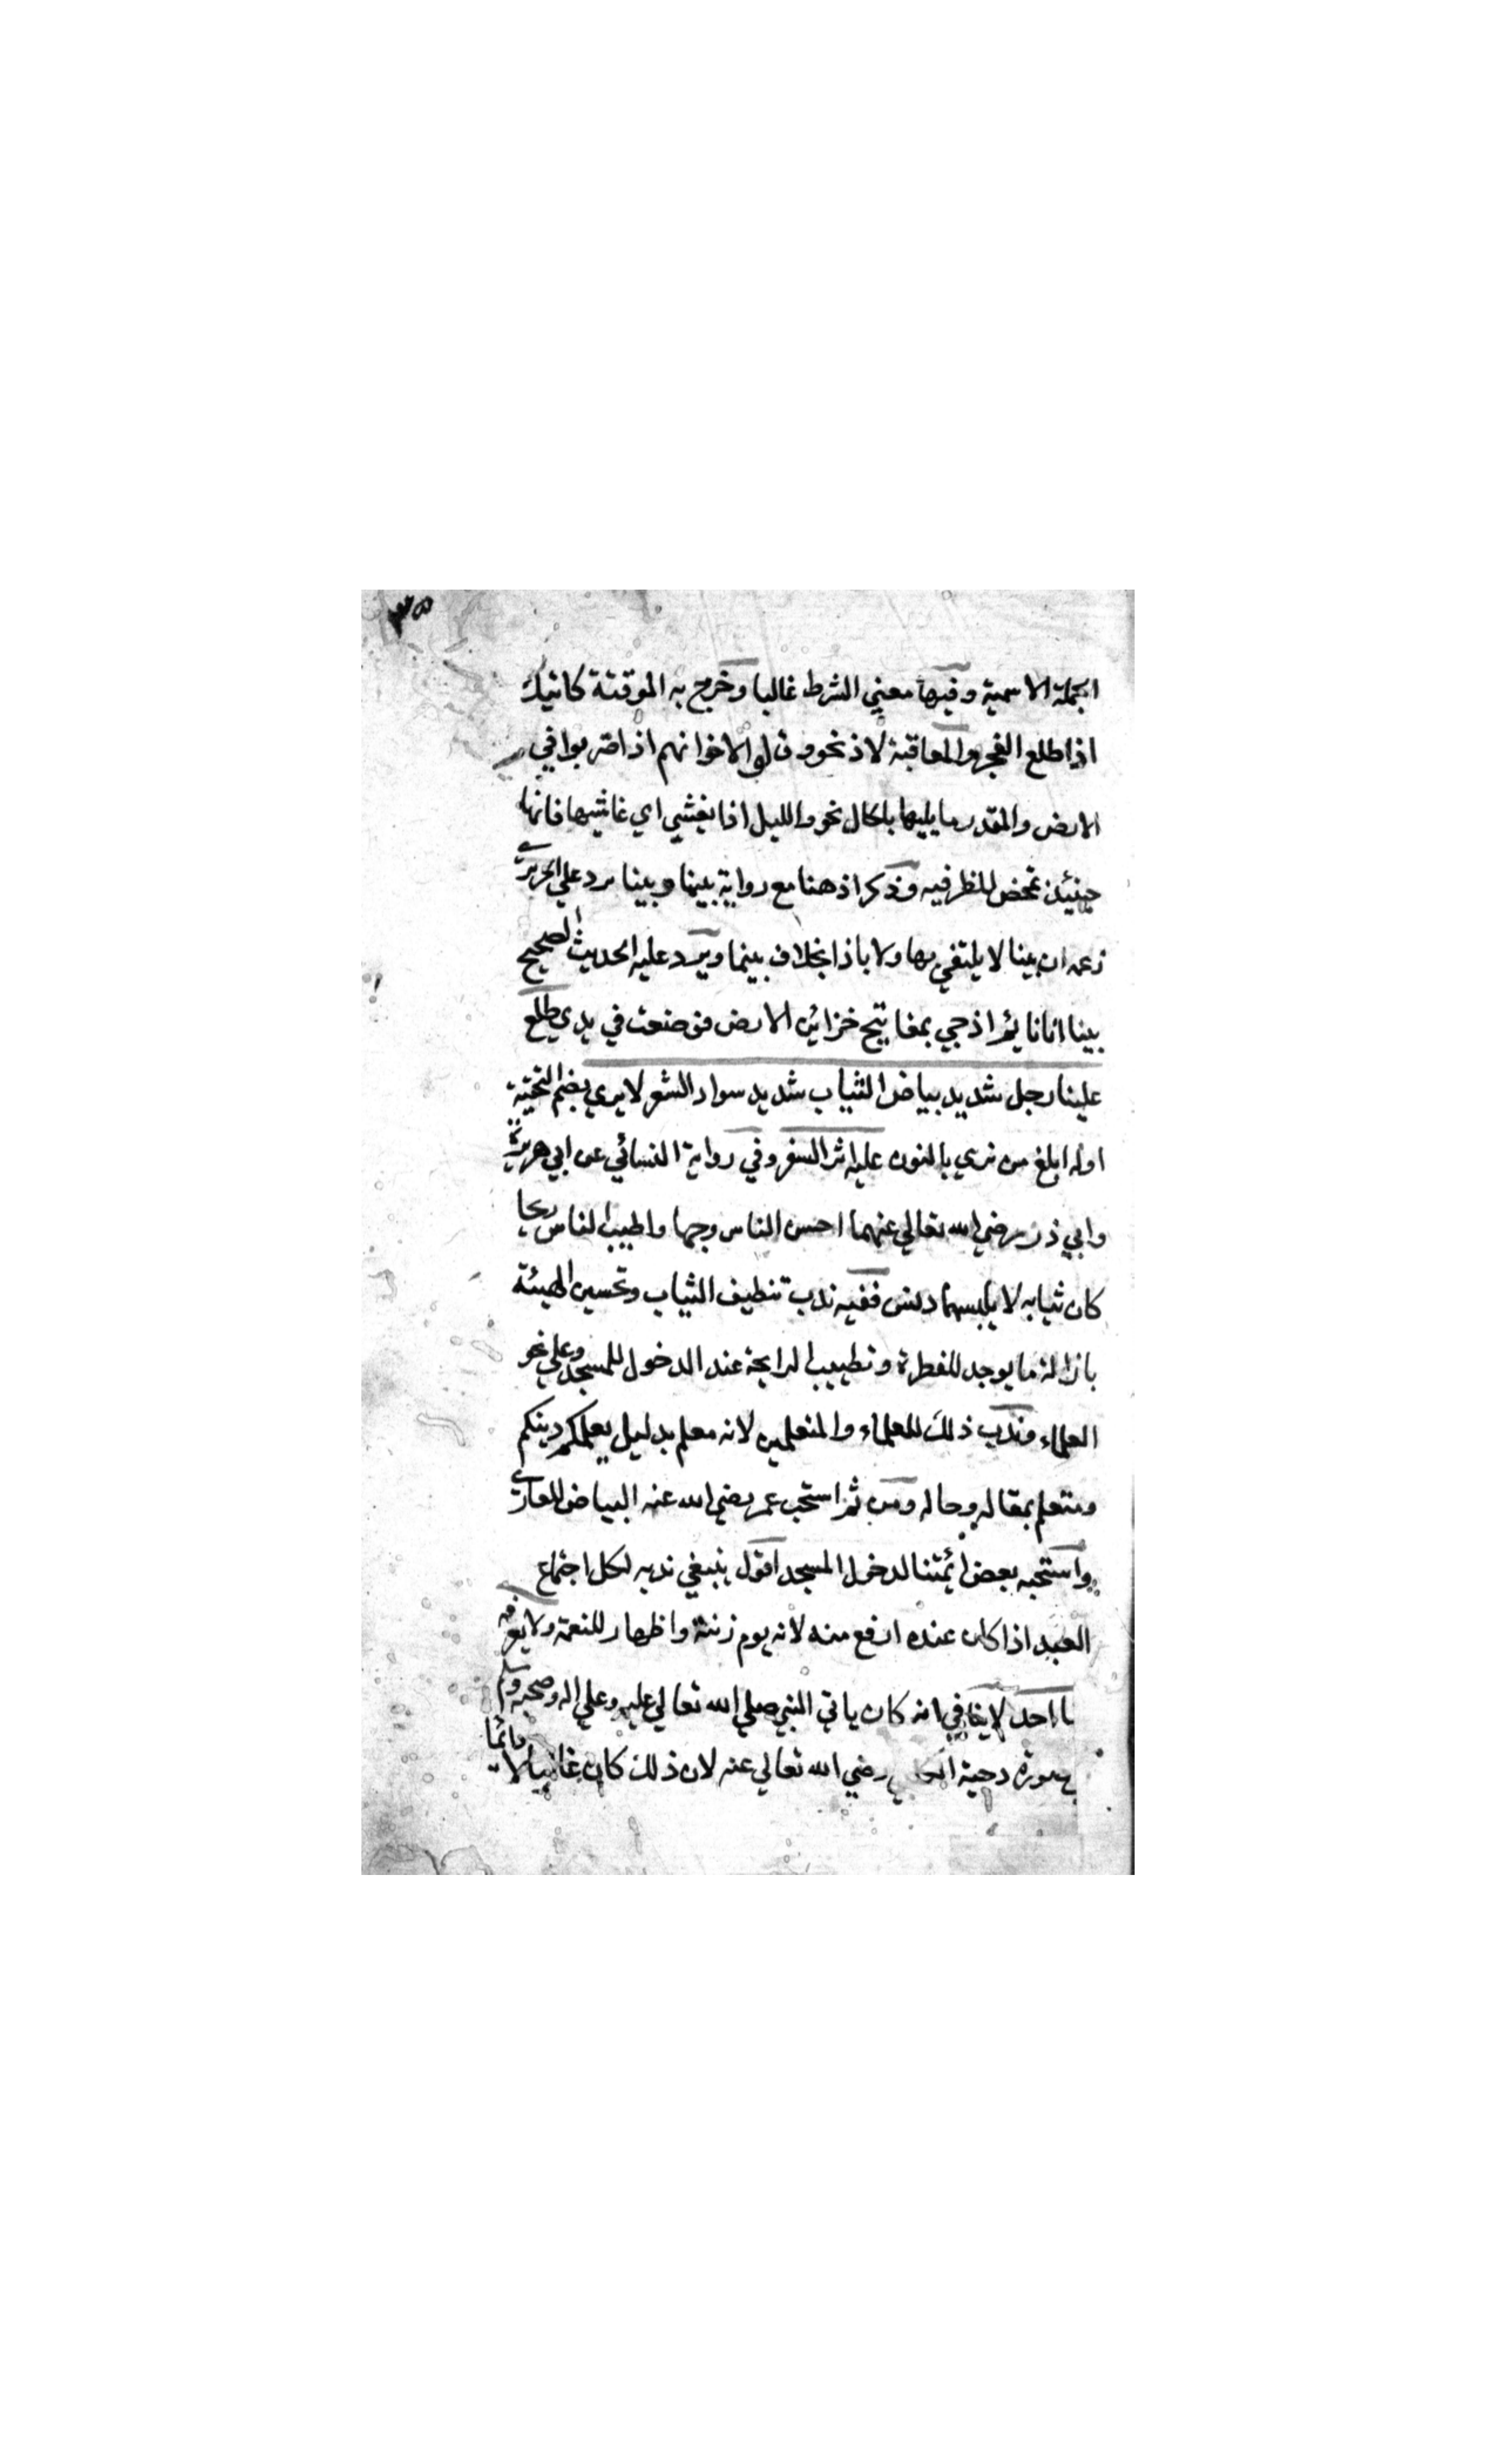 ٣٥
الجملة الاسمية وفيها معني الشرط غالبا وخرج به الموقتة كاتيك
اذا طلع الفجر والمعاقبة لاذ نحو وقالوا لاخوانهم اذا ضربوا في
الارض والمقدر ما يليها بالحال نحو والليل اذا يغشي اي غاشيها فانها
حينئذ تمحض للظرفيه وذكر اذ هنا مع رواية بينما وبينا يرد علي الحريري
زعمه ان بينا لا يلتقي بها ولا باذا بخلاف بينما ويرد عليه الحديث الصحيح
بينا انا نايم اذ جي بمفاتيح خزائن الارض فوضعت في يدي طلع
علينا رجل شديد بياض الثياب شديد سواد الشعر لا يري بضم التحتية
اوله ابلغ من نري بالنون عليه اثر السفر وفي رواية النسائي عن ابي هريرة
وابي ذر رضي الله تعالي عنهما احسن الناس وجها واطيب الناس ريحا
كان ثيابه لا يلبسها دنس ففيه ندب تنظيف الثياب وتحسين الهيئة
بازالة ما يوجد للفطرة وتطييب الرايحة عند الدخول للمسجد وعلي نحو
العلماء وندب ذلك للعلماء والمتعلمين لانه معلم بدليل يعلمكم دينكم
ومتعلم بمقاله وحاله ومن ثم استحب عمر رضي الله عنه البياض للقاري
واستحبه بعض ائمتنا لدخول المسجد اقول ينبغي ندبه لكل اجتماع
العيد اذا كان عنده ارفع منه لانه يوم زينة واظهار للنعمة ولا يعرفه
منا احد لا ينافي انه كان ياتي النبي صلي الله تعالي عليه وعلي اله وصحبه وسلم
بصورة دحية الكلبي رضي الله تعالي عنه لان ذلك كان غالبا لا دائما